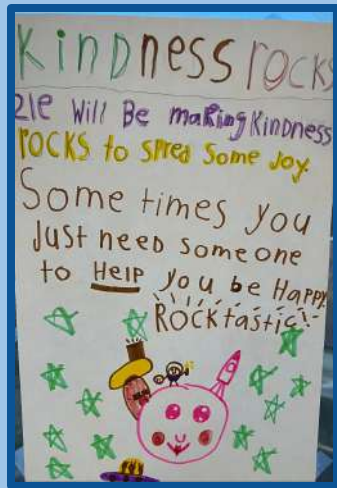 KinDness rocks
21e Will Be making Kindness
rocks to spred Some Joy.
Some times you
Just need someone
to HELP you be Happy.
ROCKtastic!